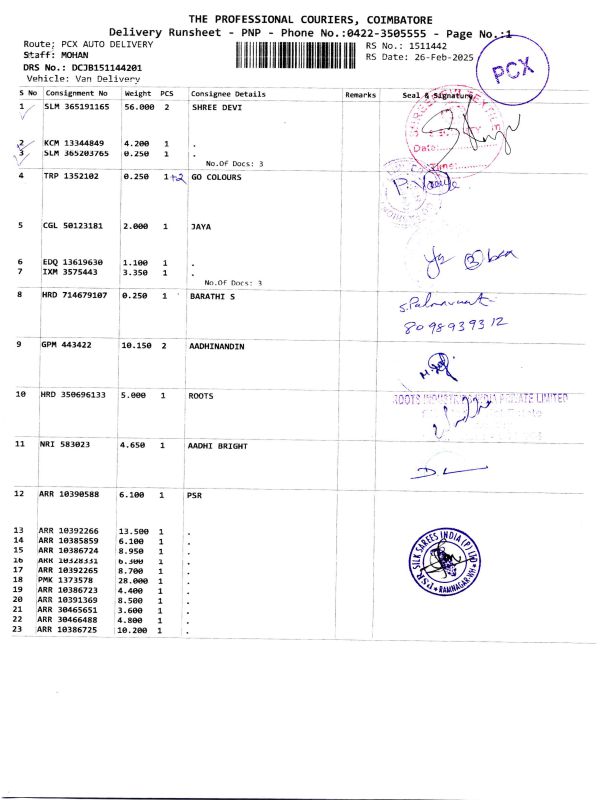 THE PROFESSIONAL COURIERS, COIMBATORE
Delivery Runsheet - PNP - Phone No.:0422-3505555 - Page No.:1
Route; PCX AUTO DELIVERY
RS No.: 1511442
Staff: MOHAN
RS Date: 26-Feb-2025
DRS No.: DCJB151144201
Vehicle: Van Delivery
PCX
S No Consignment No Weight PCS Consignee Details Remarks Seal & Signature
1 SLM 365191165 56.000 2 SHREE DEVI
2 KCM 13344849 4.200 1 .
3 SLM 365203765 0.250 1 .
Date:
Time:
No.Of Docs: 3
4 TRP 1352102 0.250 1+2 GO COLOURS
5 CGL 50123181 2.000 1 JAYA
6 EDQ 13619630 1.100 1 .
7 IXM 3575443 3.350 1 .
No.Of Docs: 3
8 HRD 714679107 0.250 1 BARATHI S
8098939312
9 GPM 443422 10.150 2 AADHINANDIN
10 HRD 350696133 5.000 1 ROOTS
ROOTS INDUSTRIES INDIA PRIVATE LIMITED
11 NRI 583023 4.650 1 AADHI BRIGHT
12 ARR 10390588 6.100 1 PSR
13 ARR 10392266 13.500 1 .
14 ARR 10385859 6.100 1 .
15 ARR 10386724 8.950 1 .
16 ARR 10328331 6.300 1 .
17 ARR 10392265 8.700 1 .
18 PMK 1373578 28.000 1 .
19 ARR 10386723 4.400 1 .
20 ARR 10391369 8.500 1 .
21 ARR 30465651 3.600 1 .
22 ARR 30466488 4.800 1 .
23 ARR 10386725 10.200 1 .
PSR SILK SAREES INDIA (P) LTD
RAMNAGAR